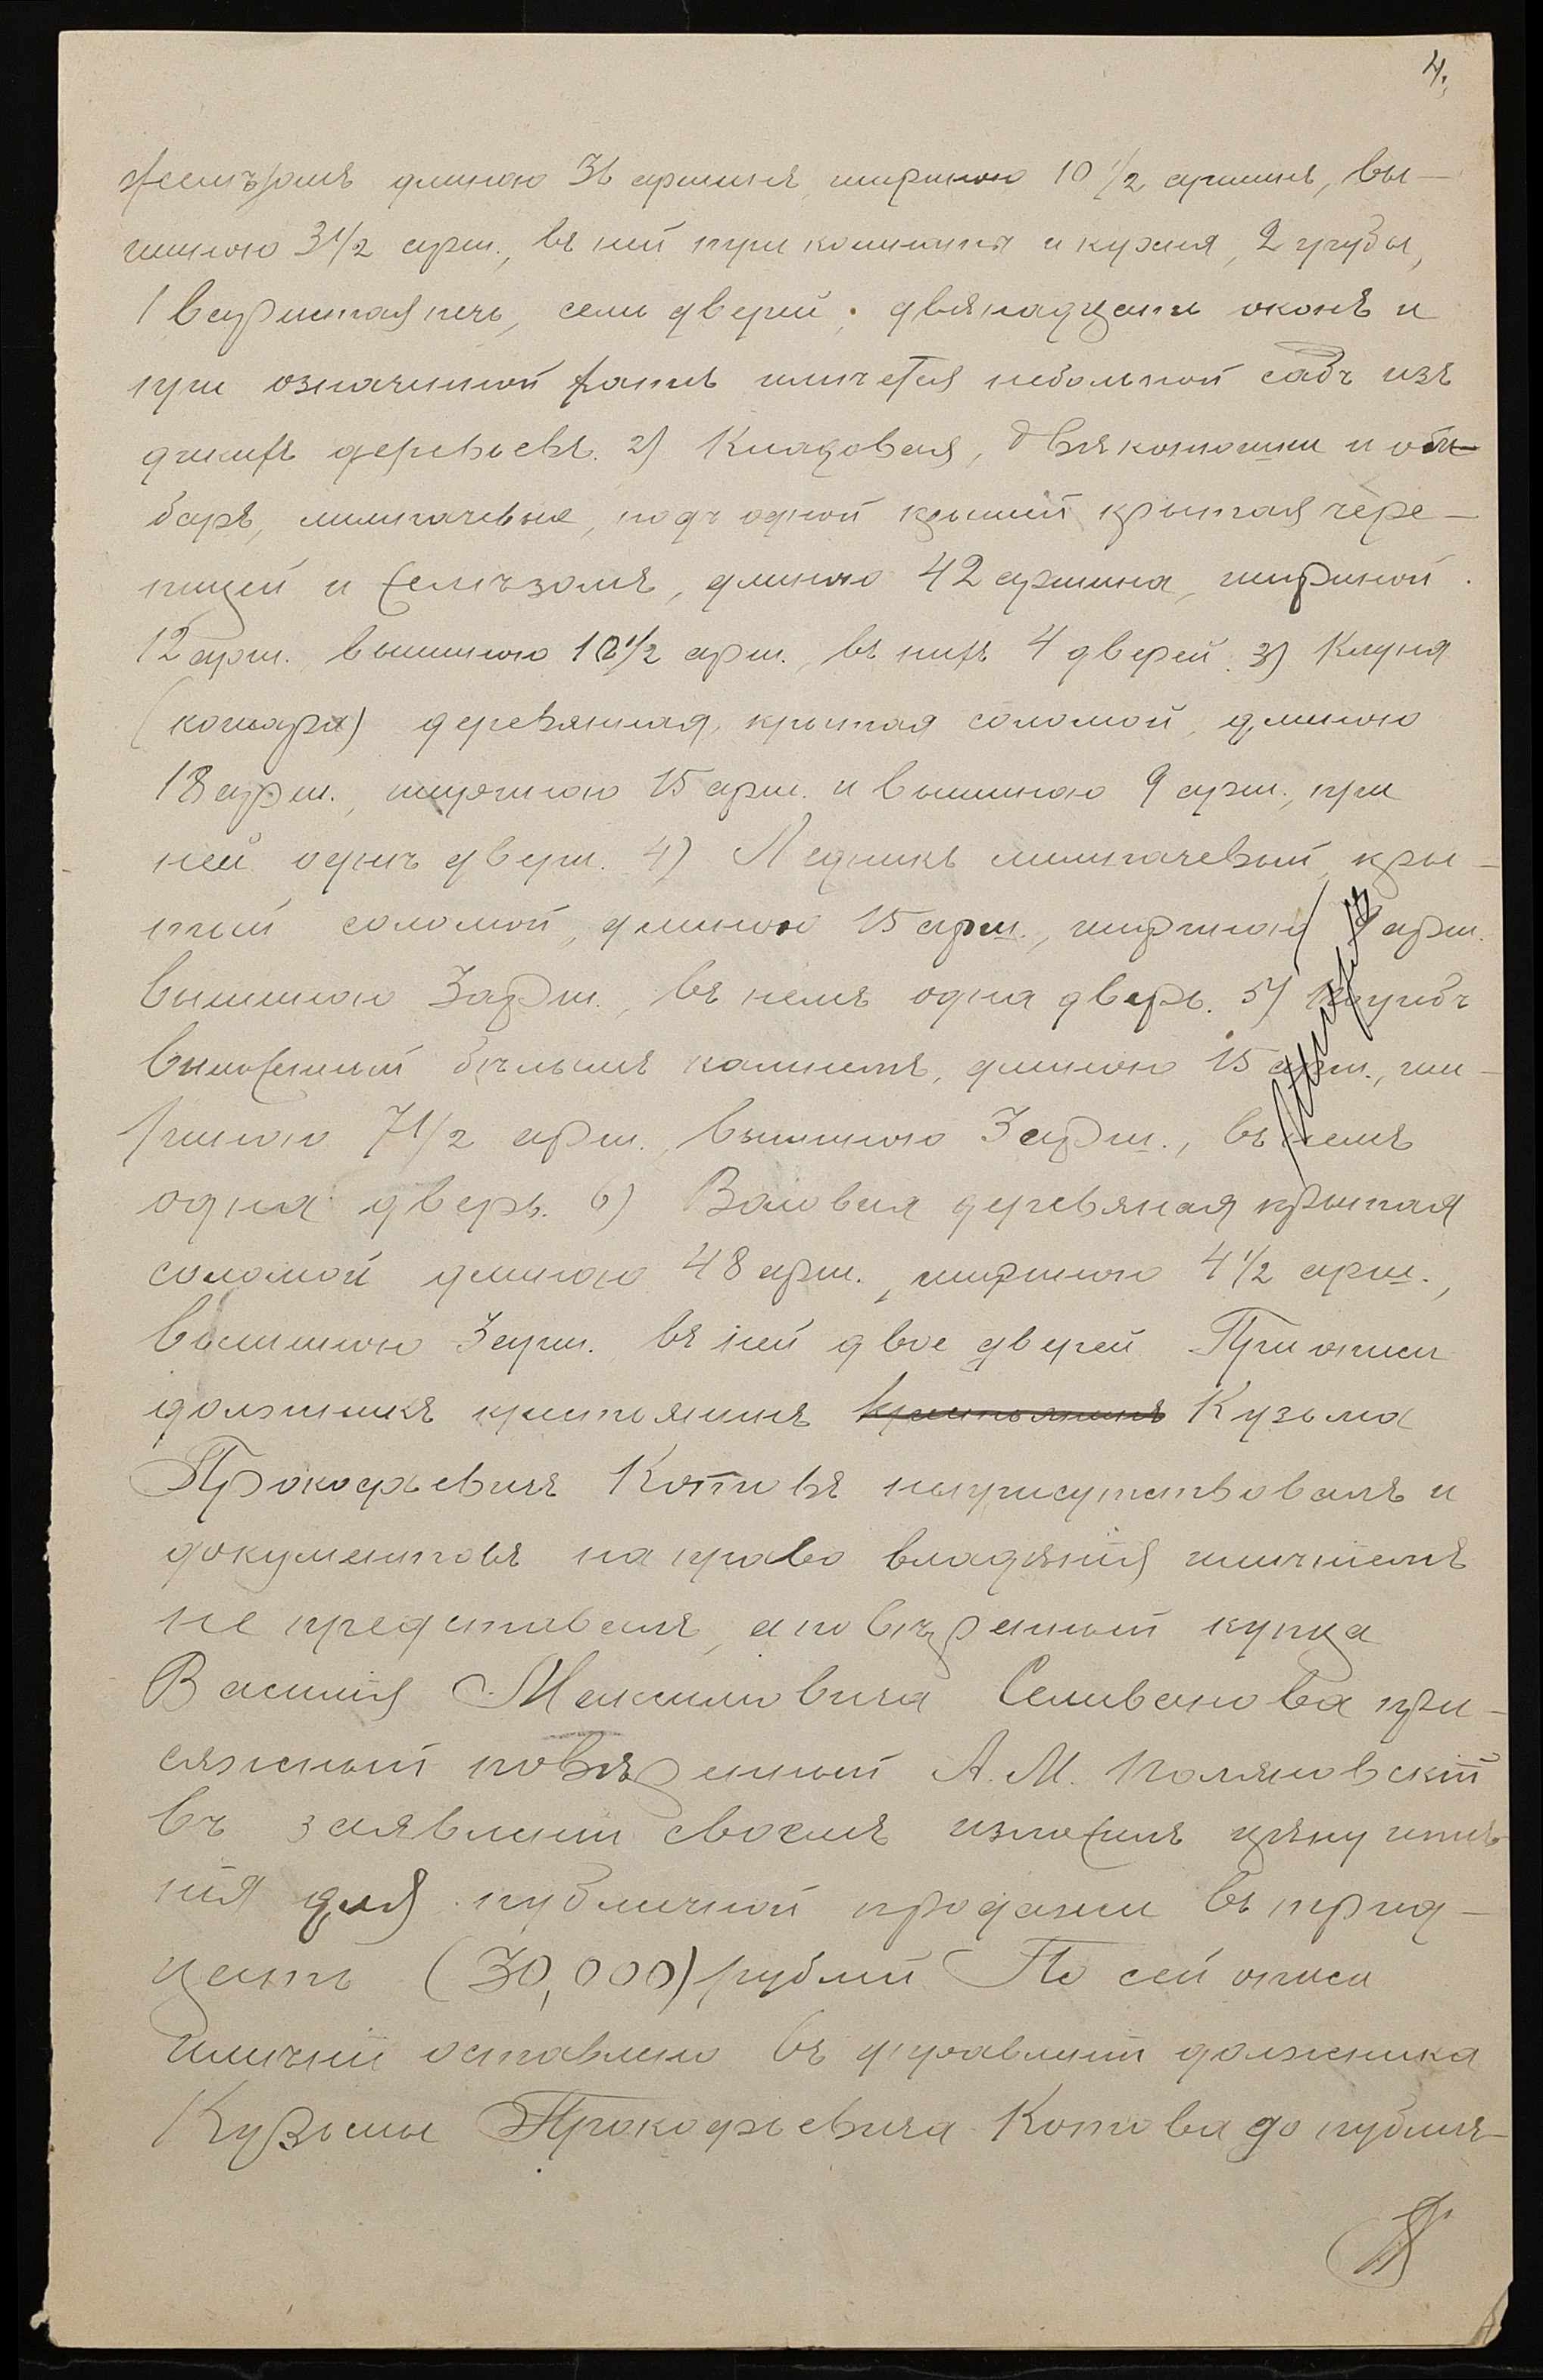 4.
желѣзомъ длиною 36 аршинъ, шириною 10 1/2 аршинъ, вы-
шиною 3 1/2 арш., въ ней три комнаты и кухня, 2 грубы,
1 варистая печь, семь дверей, двѣнадцать оконъ и
при означенной хатѣ имѣется небольшой садъ изъ
дикихъ деревьевъ. 2) Кладовая, двѣ конюшни и ам-
баръ, лимпачевые, подъ одной крышей крытая чере-
пицей и желѣзомъ, длиною 42 аршина, шириной
12 арш. вышиною 10 1/2 арш., въ нихъ 4 дверей. 3) Клуня
(кошара) деревянная, крытая соломой, длиною
18 арш., шириною 15 арш. и вышиною 9 арш., при
ней однѣ двери. 4) Ледникъ лимпачевый, кры-
тый соломой, длиною 15 арш., шириною 9 арш.
вышиною 3 арш., въ немъ одна дверь. 5) Погребъ
выложенный бѣлымъ камнемъ, длиною 15 арш., ши-
риною 7 1/2 арш., вышиною 3 арш., въ немъ
одна дверь. 6) Воловня деревяная крытая
соломой длиною 48 арш., шириною 4 1/2 арш.,
вышиною 3 арш. въ ней двое дверей. При описи
должникъ крестьянинъ крестьянинъ Кузьма
Прокофьевичъ Котовъ неприсутствовалъ и
документовъ на право владѣнія имѣніемъ
не представилъ, а повѣренный купца
Василія Максимовича Селиванова при-
сяжный повѣренный А. М. Поляновскій
въ заявленіи своемъ изложилъ цѣну имѣ-
нія для публичной продажи въ трид-
цать (30,000) рублей. По сей описи
имѣніе оставлено въ управленіи должника
Кузьмы Прокофьевича Котова до публич-